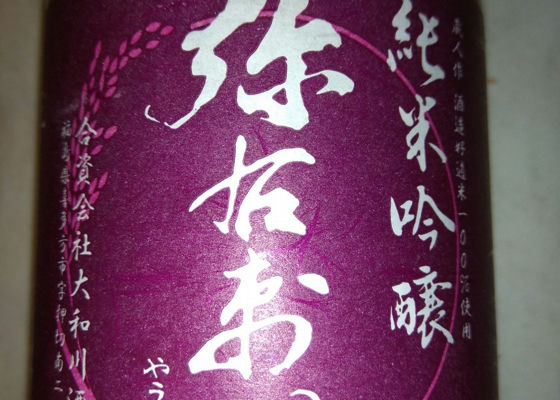 蔵人作 酒造好適米一〇〇%使用
純米吟醸
弥右衛
やう
合資会社大和川酒
福島県喜多方市字押切南二